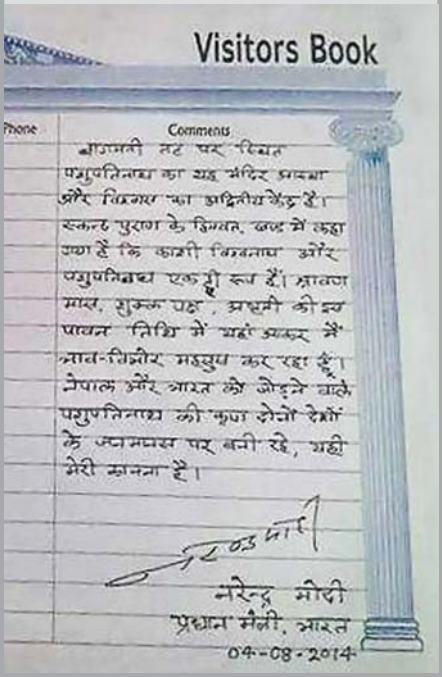 Visitors Book
Phone
Comments
बागमती तट पर स्थित
पशुपतिनाथ का यह मंदिर आस्था
और विश्वास का अद्वितीय केंद्र है।
स्कन्द पुराण के हिमवत् खण्ड में कहा
गया है कि काशी विश्वनाथ और
पशुपतिनाथ एक ही रूप हैं। श्रावण
मास, शुक्ल पक्ष, अष्टमी की इस
पावन तिथि में यहां आकर मैं
भाव-विभोर महसूस कर रहा हूँ।
नेपाल और भारत को जोड़ने वाले
पशुपतिनाथ की कृपा दोनों देशों
के जनमानस पर बनी रहे, यही
मेरी कामना है।
नरेन्द्र मोदी
नरेन्द्र मोदी
प्रधान मंत्री, भारत
04-08-2014